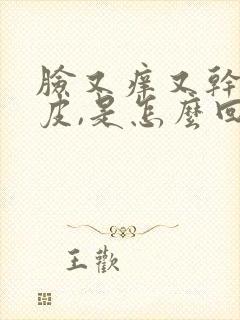 臉又痒又幹
皮,是怎麼回
王歡